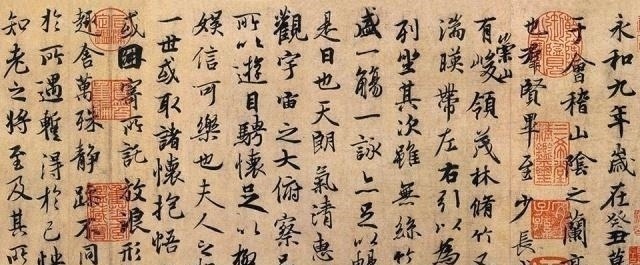 永和九年歲在癸丑暮
于會稽山陰之蘭亭
也羣賢畢至少長
有崇山峻領茂林脩竹又
湍暎帶左右引以為
列坐其次雖無絲竹
盛一觴一詠亦足以暢
是日也天朗氣清惠
觀宇宙之大俯察品
所以遊目騁懷足以極
娛信可樂也夫人之相
一世或取諸懷抱悟
或因寄所託放浪形
趣舍萬殊静躁不同
於所遇蹔得於己快
知老之將至及其所